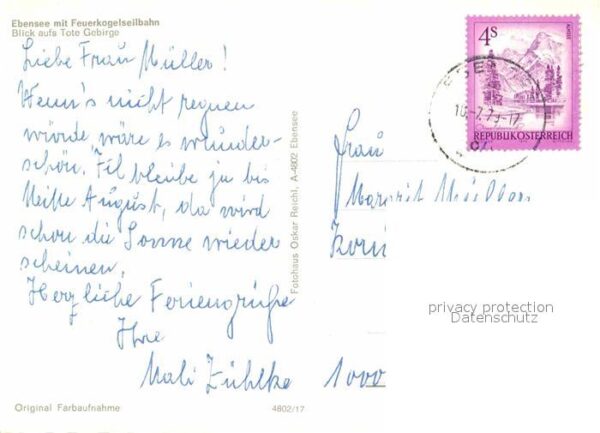 Ebensee mit Feuerkogelseilbahn
Blick aufs Tote Gebirge
Liebe Frau Müller!
Wenn's nicht regnen
würde wäre es wunder-
schön. Ich bleibe ja bis
Mitte August, da wird
schon die Sonne wieder
scheinen.
Herzliche Feriengrüße
Ihre
Mali Zühlke
Original Farbaufnahme
4802/17
Fotohaus Oskar Reichl, A-4802 Ebensee
4S
ALMSEE
REPUBLIK ÖSTERREICH
Frau
Margrit Müller
1000
privacy protection
Datenschutz